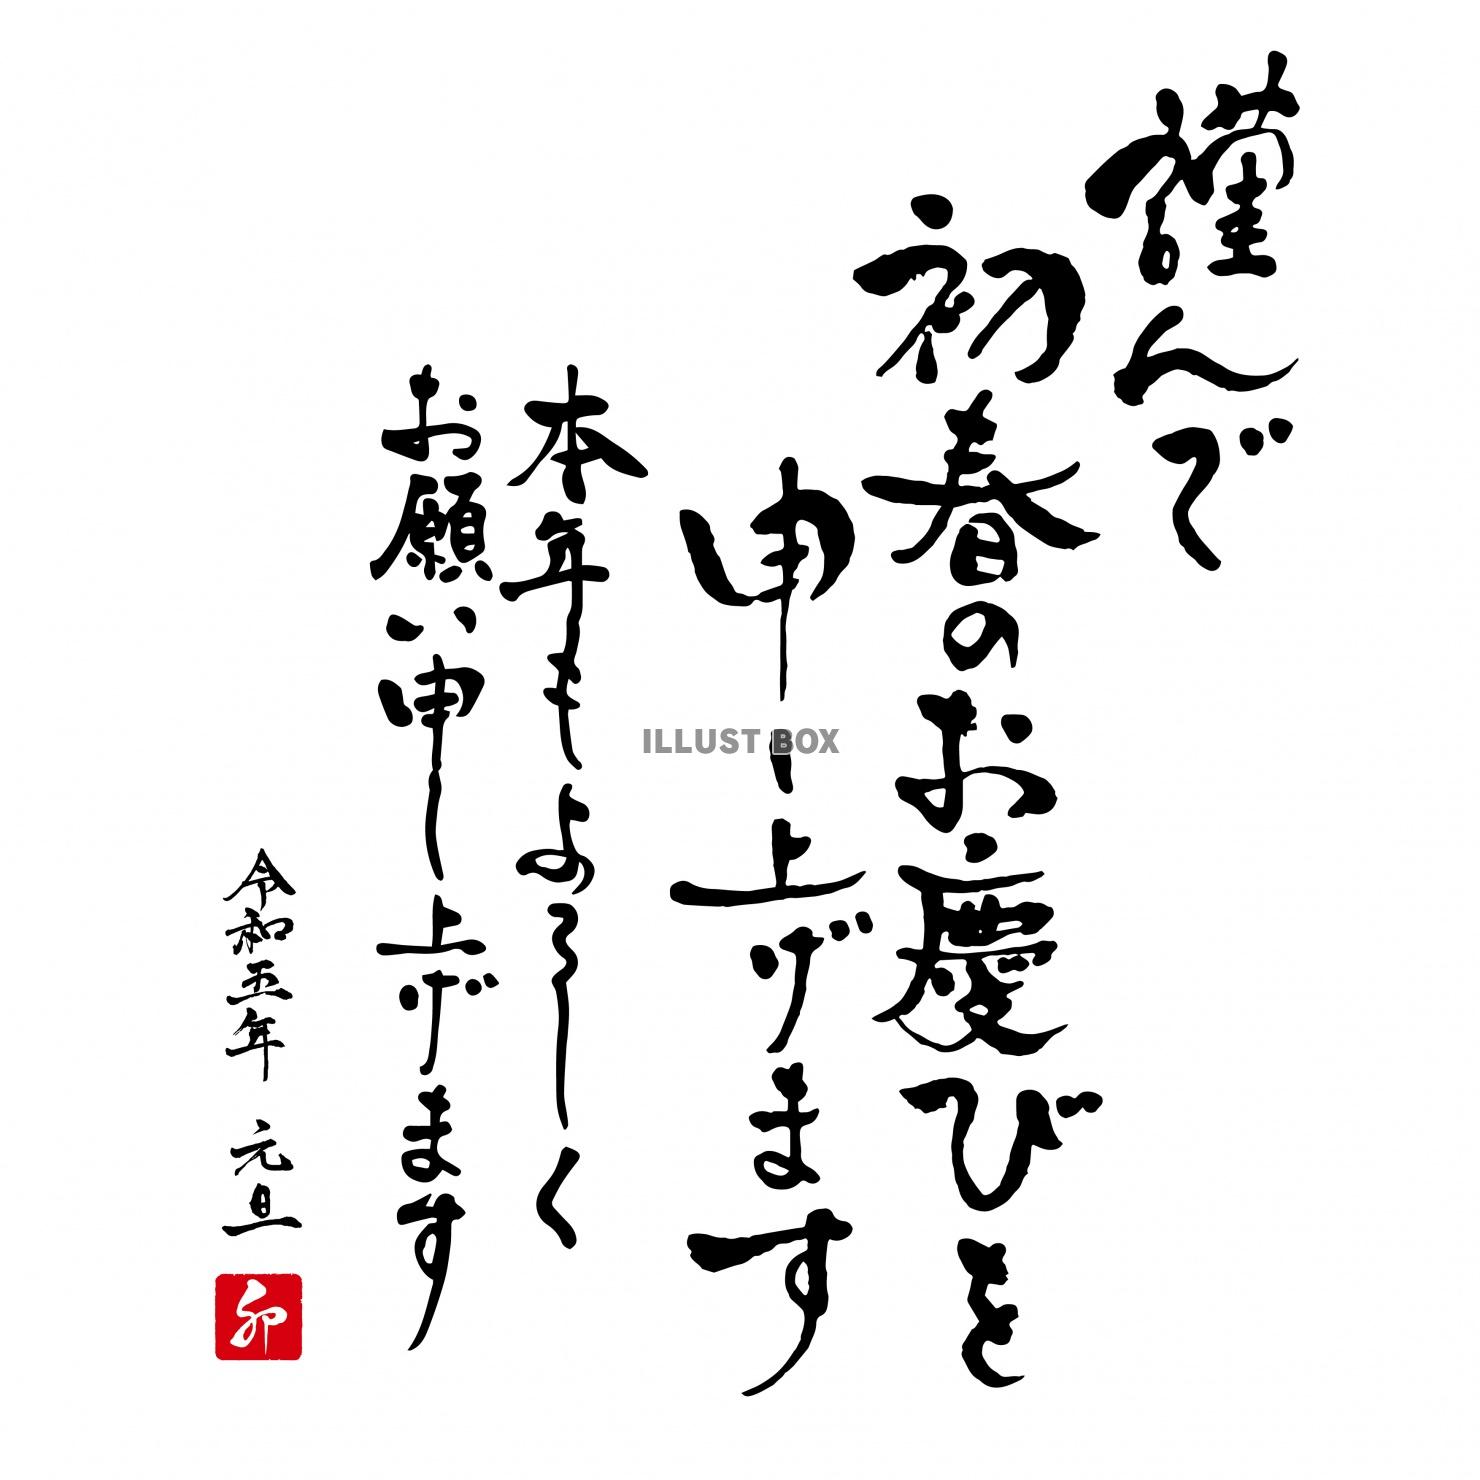 謹んで
初春のお慶びを
申し上げます
本年もよろしく
お願い申し上げます
令和五年 元旦
卯
ILLUST BOX